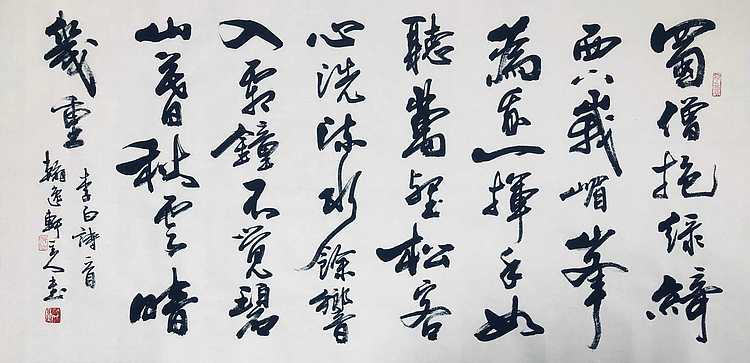 蜀僧抱綠綺
西下峩嵋峯
為我一揮手如
聽萬壑松客
心洗流水餘響
入霜鐘不覺碧
山暮秋云暗
幾重
李白詩一首
翰逸軒主人書